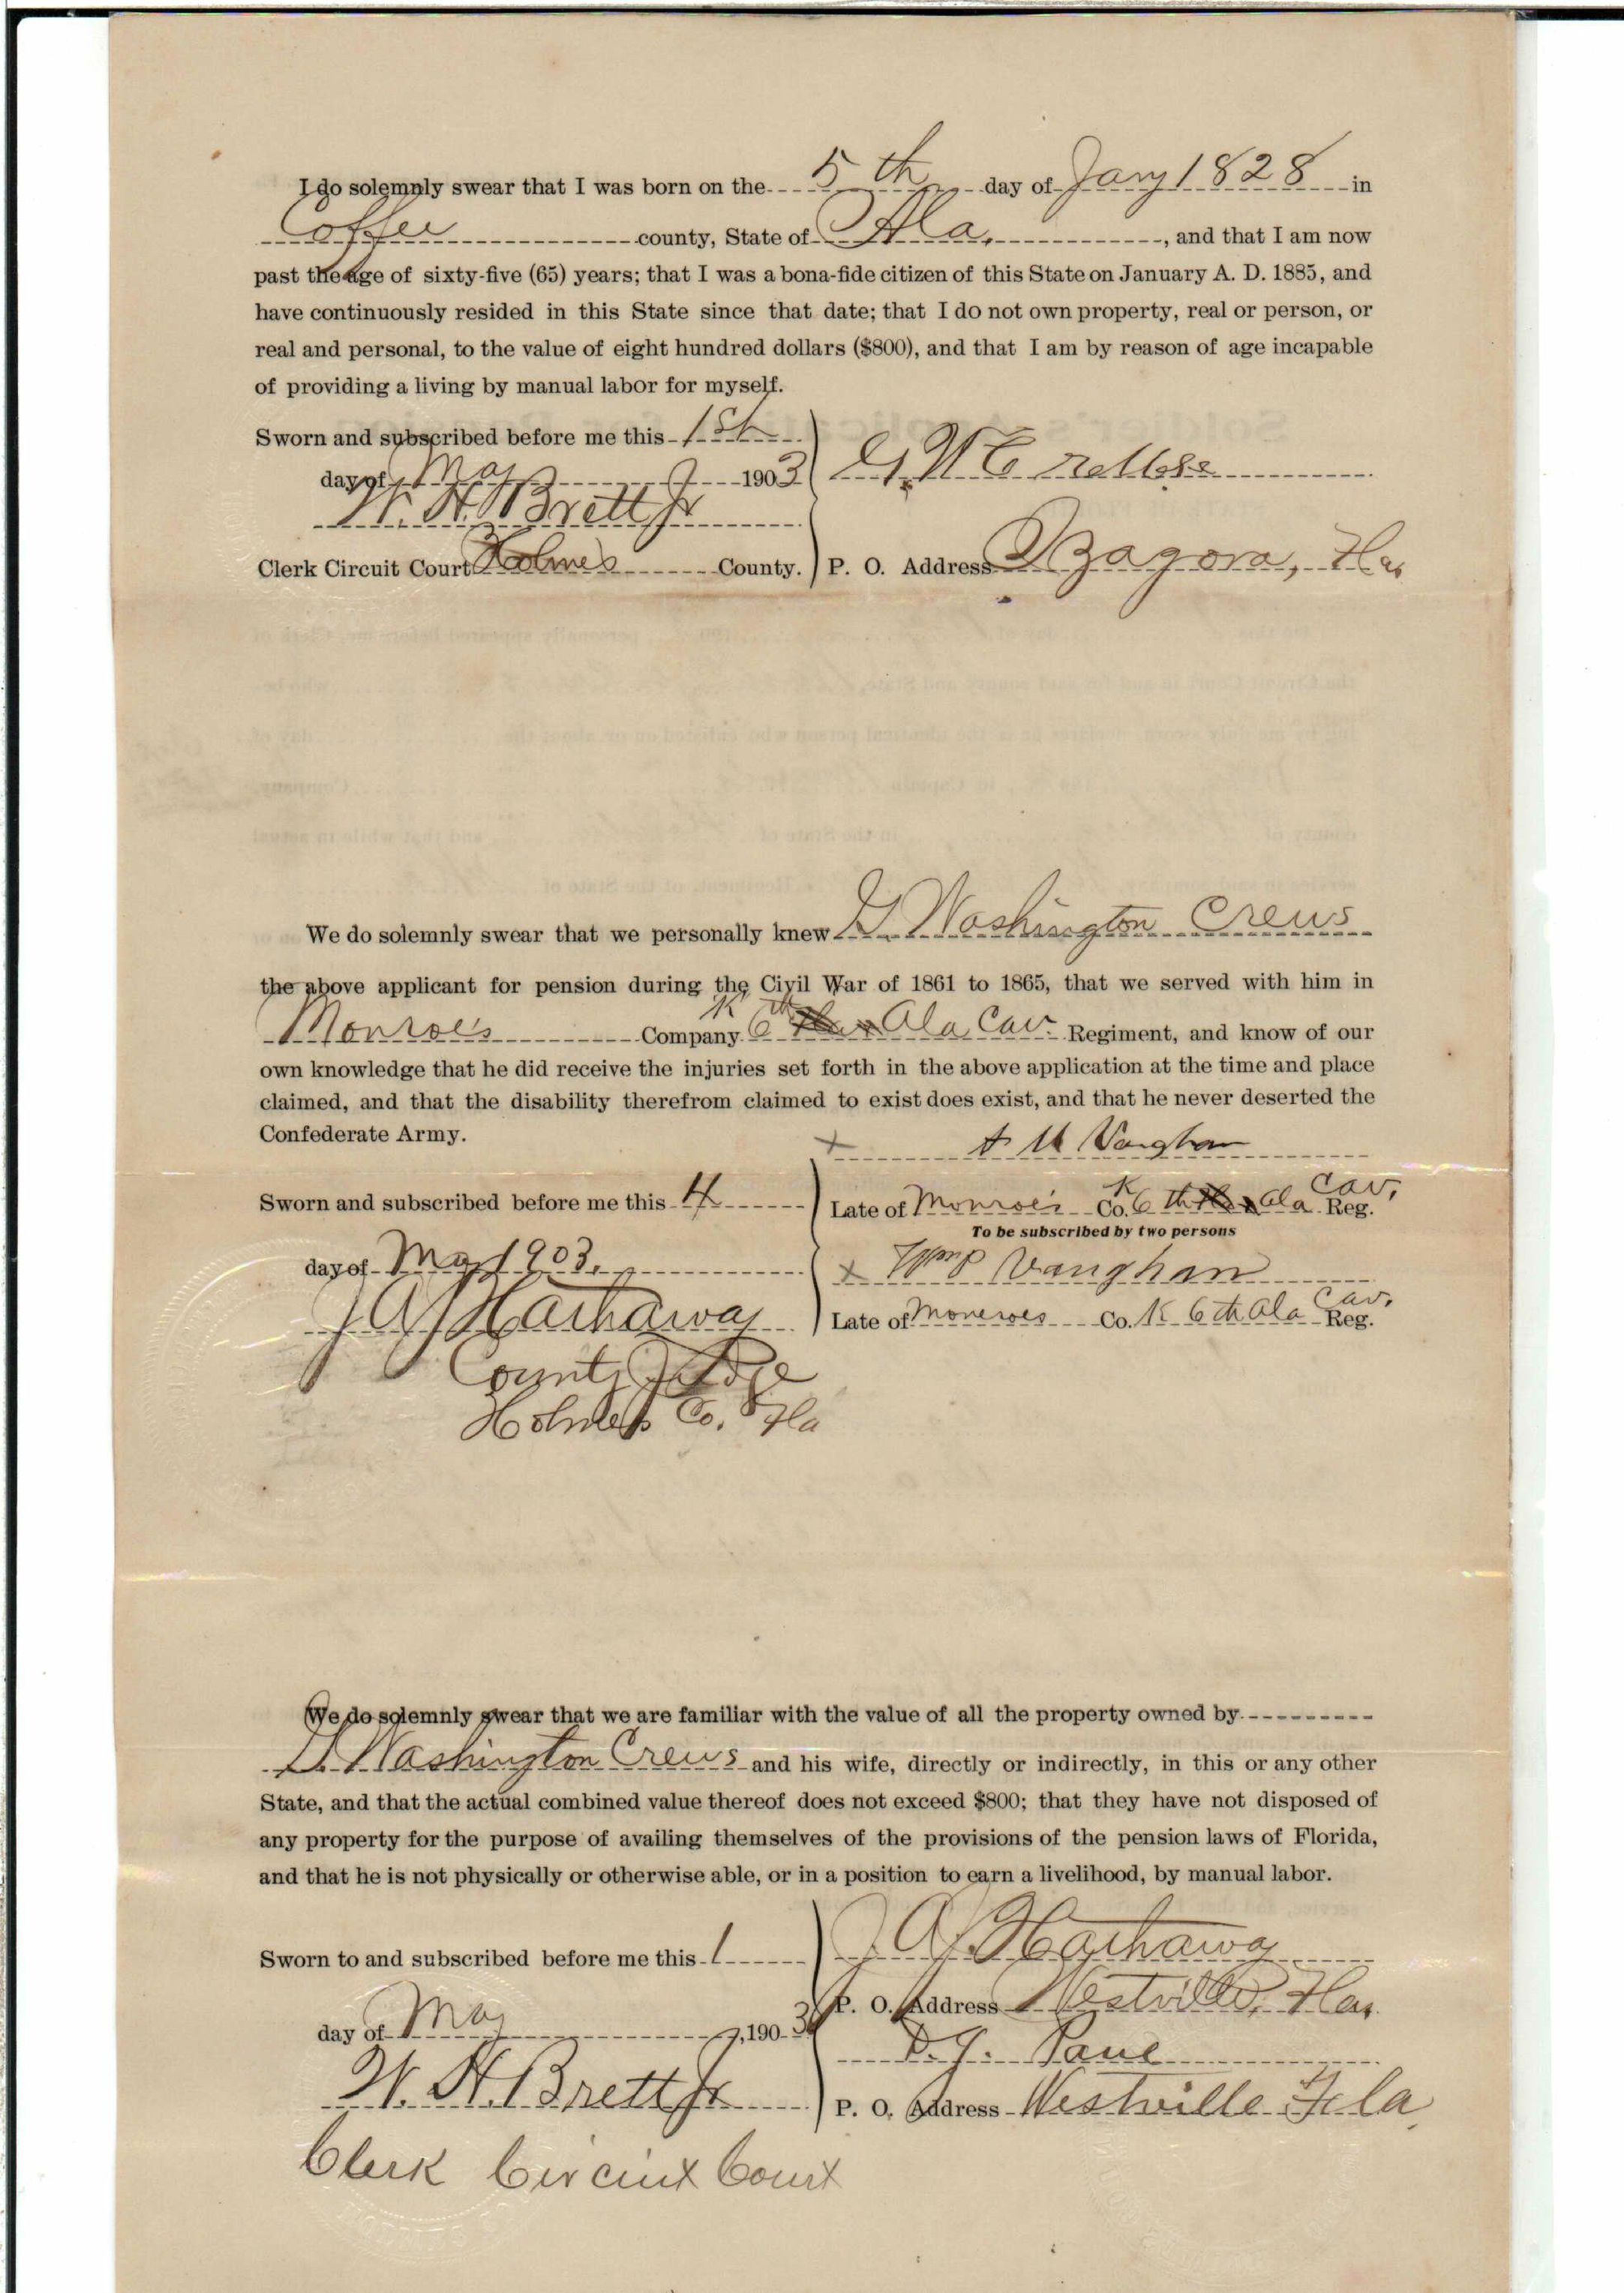 I do solemnly swear that I was born on the 5th day of Jany 1828 in
Coffee county, State of Ala., and that I am now
past the age of sixty-five (65) years; that I was a bona-fide citizen of this State on January A. D. 1885, and
have continuously resided in this State since that date; that I do not own property, real or person, or
real and personal, to the value of eight hundred dollars ($800), and that I am by reason of age incapable
of providing a living by manual labor for myself.
Sworn and subscribed before me this 1st
day of May 1903 G. W.
W. H. Brett Jr
Clerk Circuit Court Holmes County. P. O. Address Izagora, Fla,
We do solemnly swear that we personally knew G Washington Crews
the above applicant for pension during the Civil War of 1861 to 1865, that we served with him in
Monroe's Company K 6th Ala Cav. Regiment, and know of our
own knowledge that he did receive the injuries set forth in the above application at the time and place
claimed, and that the disability therefrom claimed to exist does exist, and that he never deserted the
Confederate Army.
x A M Vaughan
Sworn and subscribed before me this 4 Late of Monroe's Co. K 6th Ala Cav, Reg.
To be subscribed by two persons
day of May 1903. x Wm P Vaughan
J A Hathaway Late of Moneroes Co. K 6th Ala Cav, Reg.
County Judge
Holmes Co. Fla
We do solemnly swear that we are familiar with the value of all the property owned by
G. Washington Crews and his wife, directly or indirectly, in this or any other
State, and that the actual combined value thereof does not exceed $800; that they have not disposed of
any property for the purpose of availing themselves of the provisions of the pension laws of Florida,
and that he is not physically or otherwise able, or in a position to earn a livelihood, by manual labor.
Sworn to and subscribed before me this 1 J A Hathaway
P. O. Address Westville, Fla,
day of May, 1903 D. J. Paul
W. H. Brett Jr P. O. Address Westville Fla,
Clerk Circuit Court